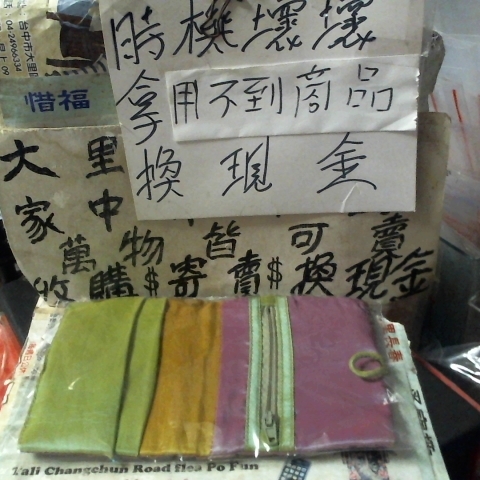 時機壞壞
拿用不到商品
換現金
惜福
大里
家中
萬物皆可賣
收購$寄賣$換現金
Tali Changchun Road flea Po Fun